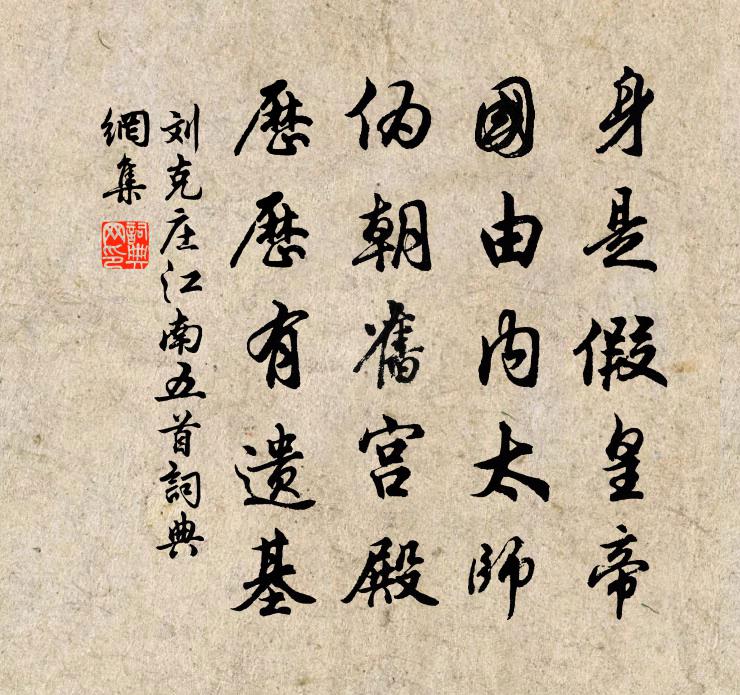 身是假皇帝
國由内太師
伪朝舊宫殿
歷歷有遗基
刘克庄江南五首詞典
網集
詞典
网印